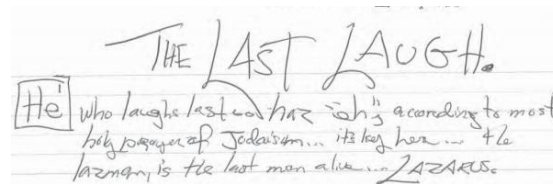 THE LAST LAUGH.
He who laughs last has "oh" according to most
holy prayer of Judaism... its key here... the
lazman, is the last man alive... LAZARUS.